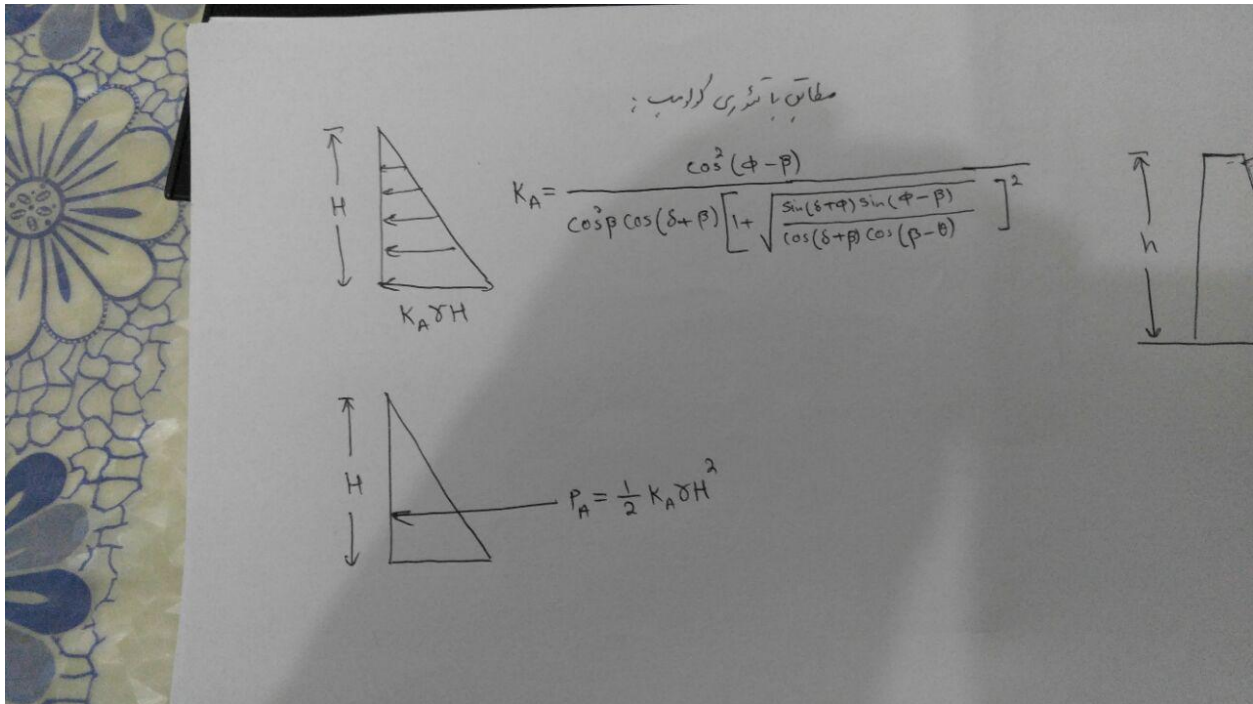 مطابق با تئوری کولمب :
H
K_A = cos²(φ-β) / cos²β cos(δ+β) [1+ √(sin(δ+φ) sin(φ-β) / cos(δ+β) cos(β-θ))]²
h
K_A γH
H
P_A = 1/2 K_A γH²